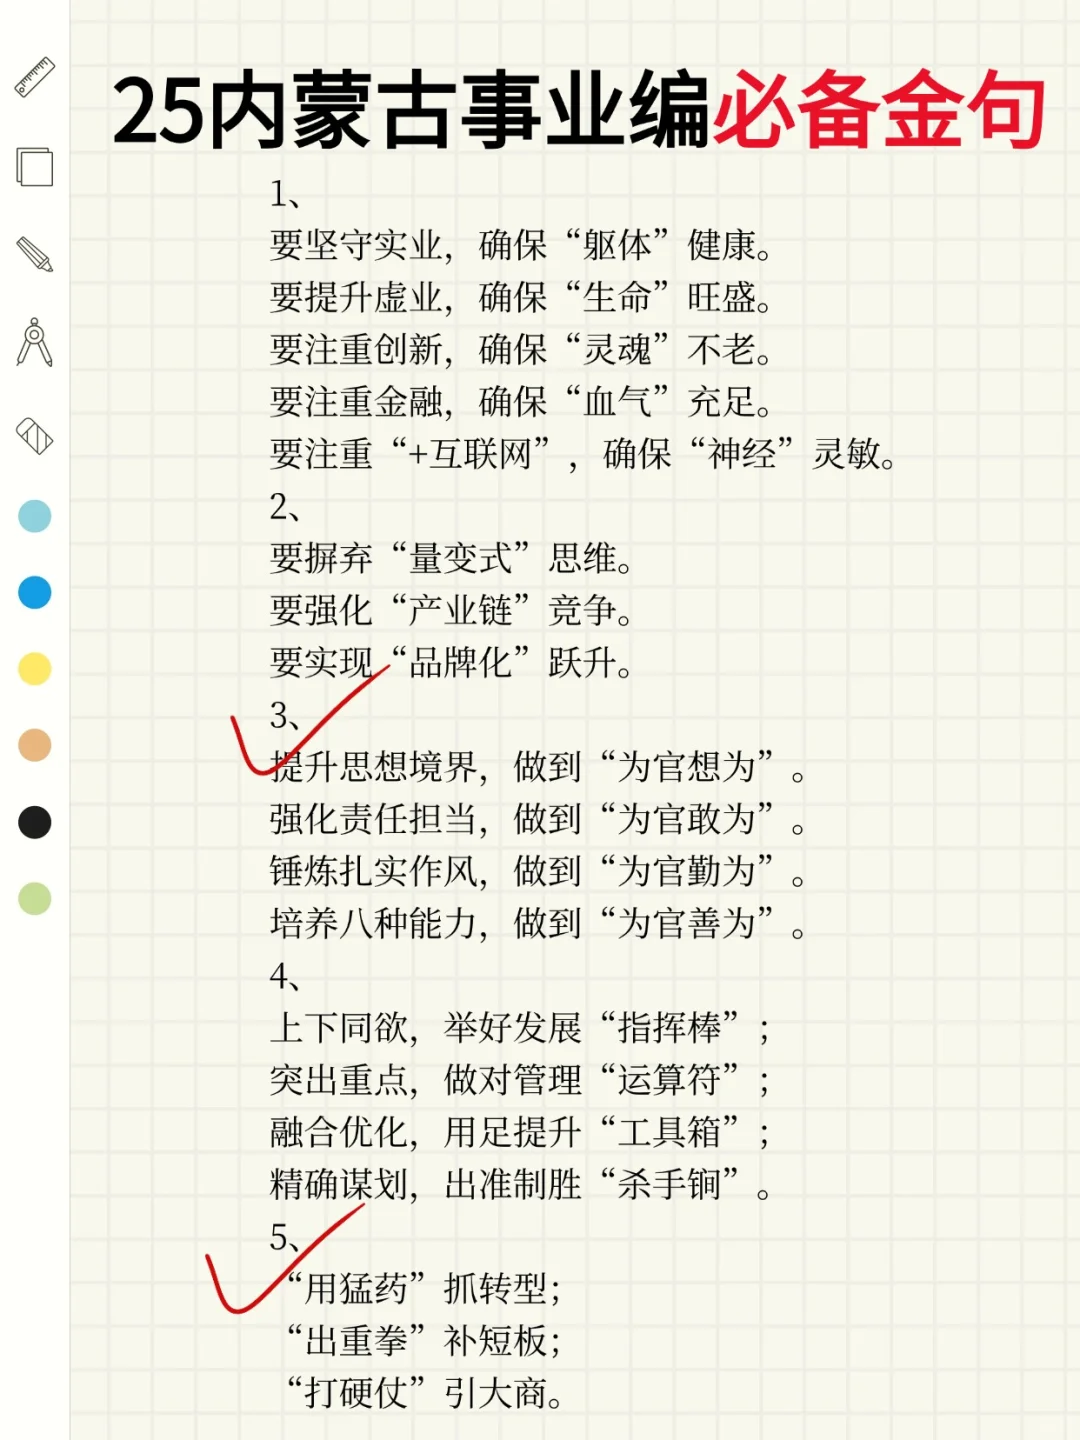 25内蒙古事业编必备金句
1、
要坚守实业，确保“躯体”健康。
要提升虚业，确保“生命”旺盛。
要注重创新，确保“灵魂”不老。
要注重金融，确保“血气”充足。
要注重“+互联网”，确保“神经”灵敏。
2、
要摒弃“量变式”思维。
要强化“产业链”竞争。
要实现“品牌化”跃升。
3、
提升思想境界，做到“为官想为”。
强化责任担当，做到“为官敢为”。
锤炼扎实作风，做到“为官勤为”。
培养八种能力，做到“为官善为”。
4、
上下同欲，举好发展“指挥棒”；
突出重点，做对管理“运算符”；
融合优化，用足提升“工具箱”；
精确谋划，出准制胜“杀手锏”。
5、
“用猛药”抓转型；
“出重拳”补短板；
“打硬仗”引大商。